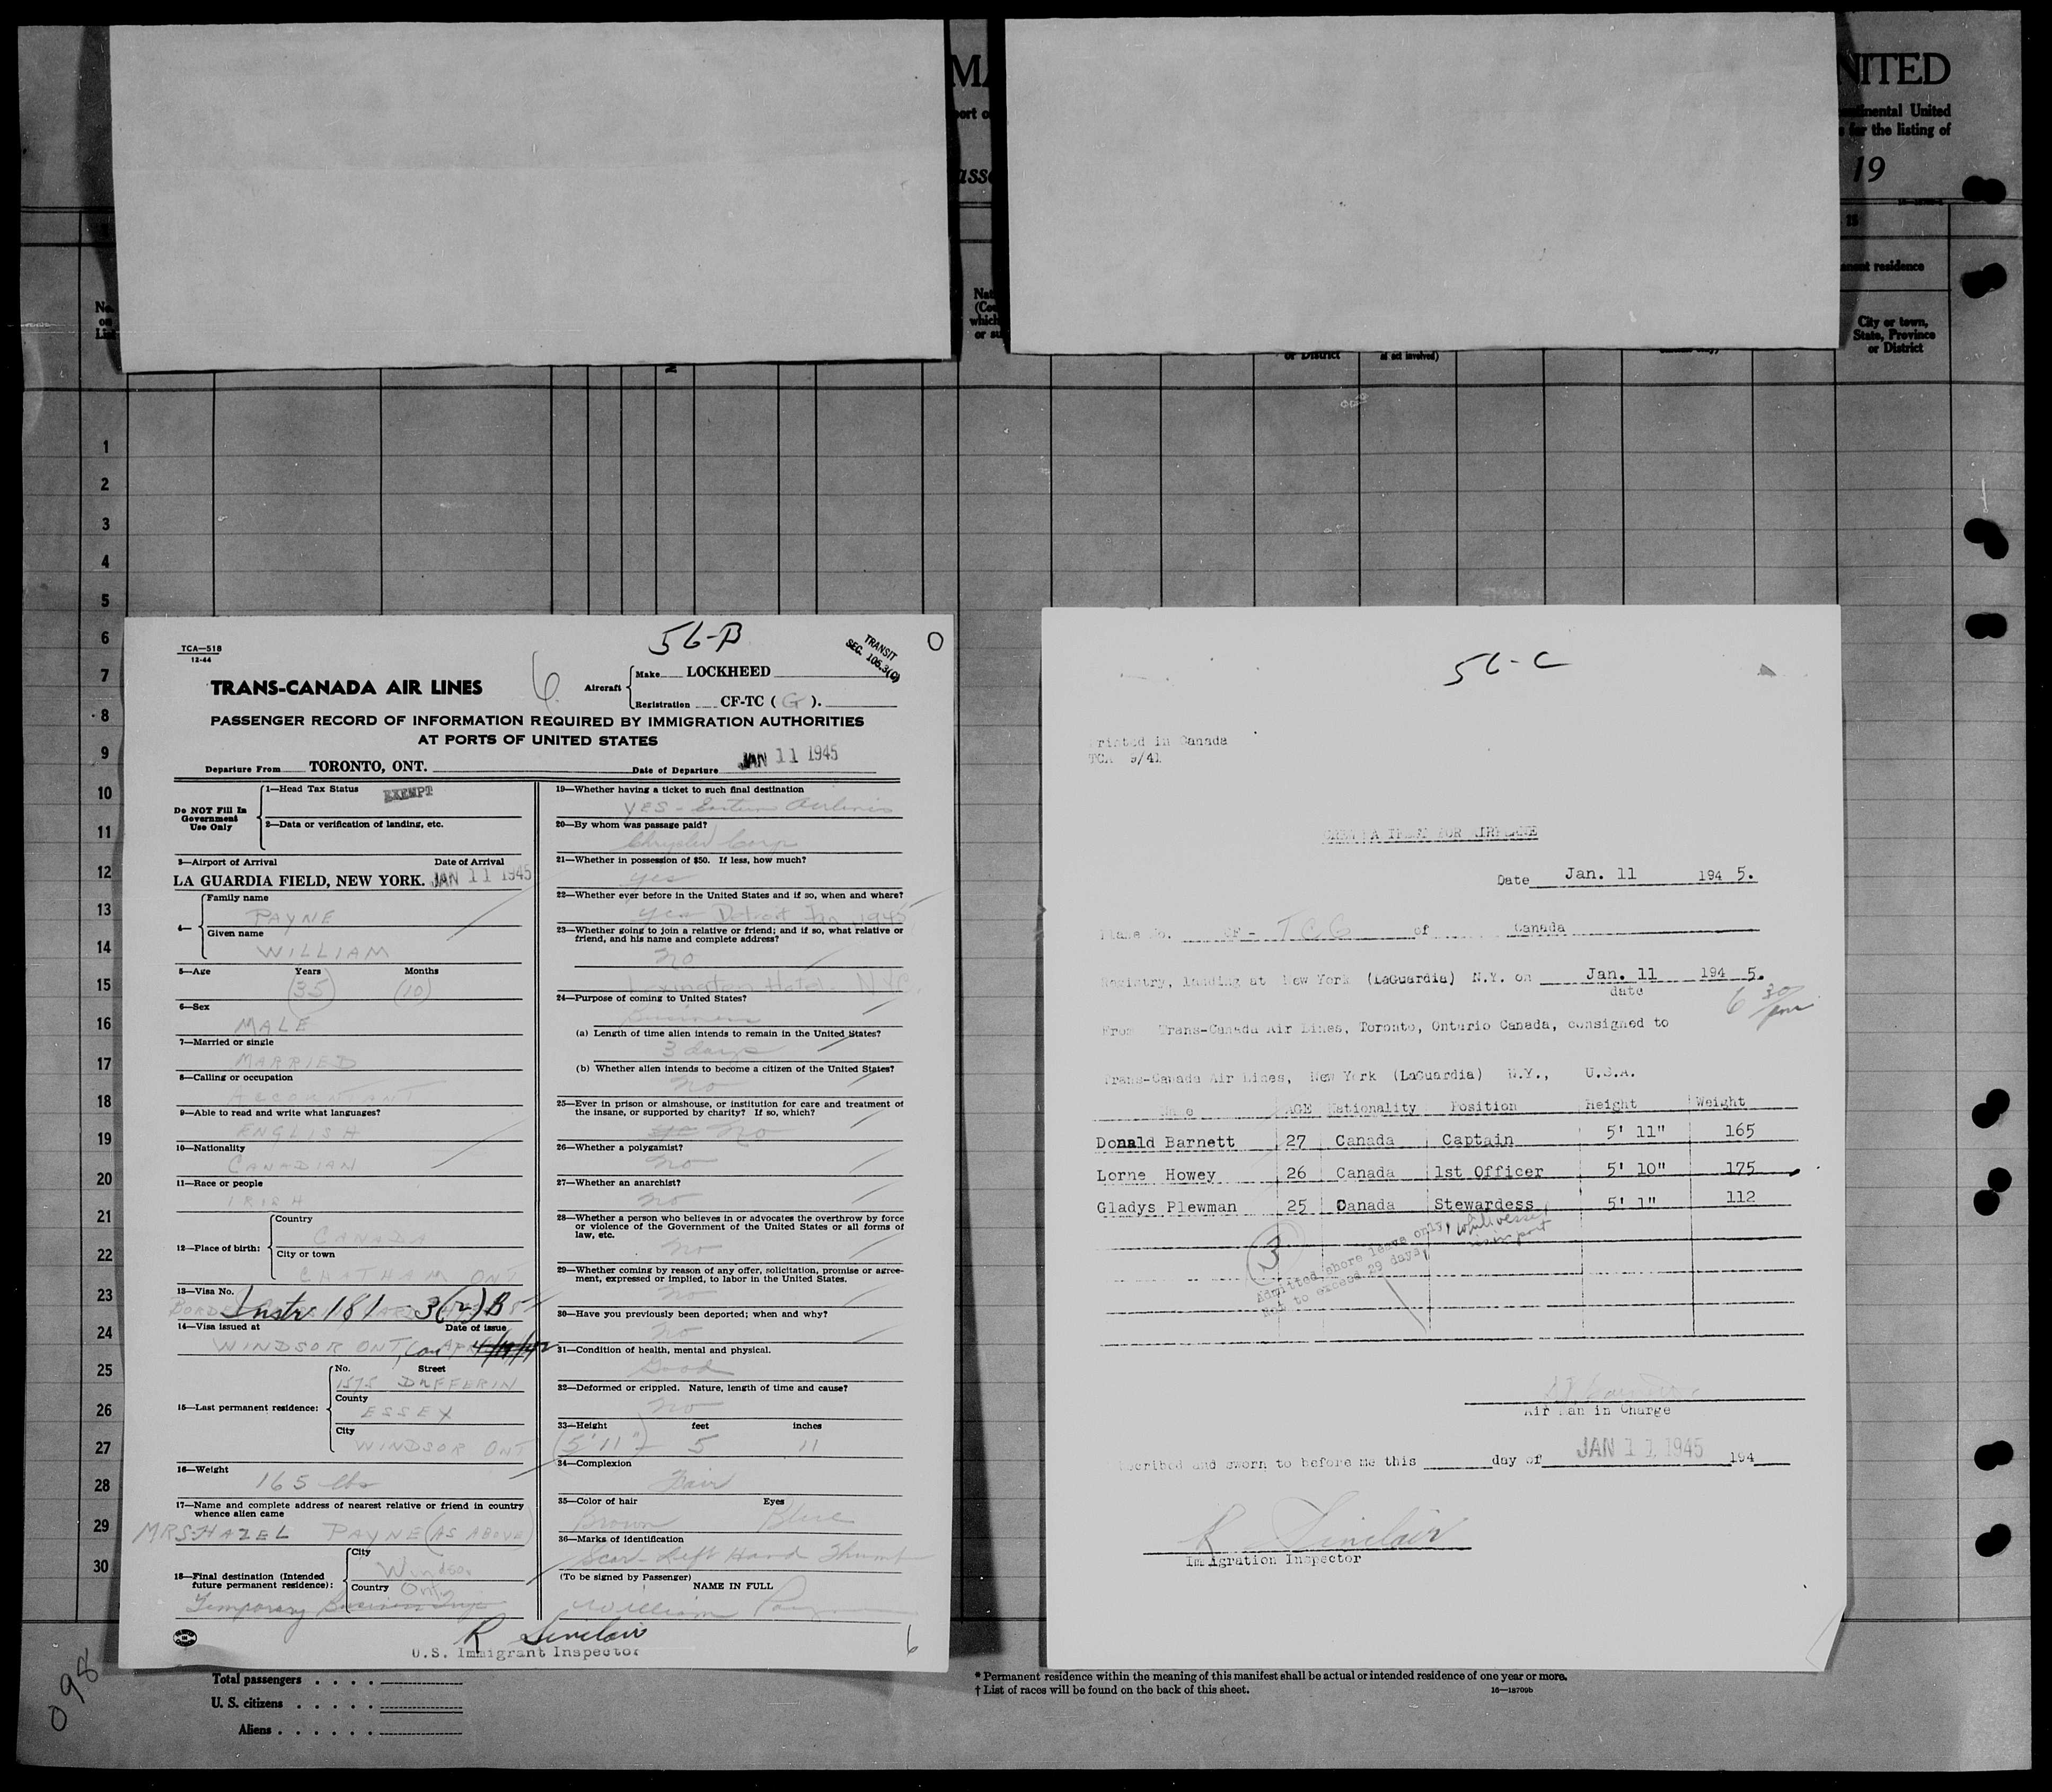 MA
NITED
ort o
ntinental United
s for the listing of
asse
19
15
nent residence
No.
on
List
Nat
(Cou
which
or su
or District
City or town,
State, Province
or District
1
2
3
4
5
6
7
8
9
10
11
12
13
14
15
16
17
18
19
20
21
22
23
24
25
26
27
28
29
30
56-B
O
TCA—518
12-44
TRANSIT
SEC. 106.3(G)
TRANS-CANADA AIR LINES
6
Aircraft
Make LOCKHEED
Registration CF-TC ( G ).
PASSENGER RECORD OF INFORMATION REQUIRED BY IMMIGRATION AUTHORITIES
AT PORTS OF UNITED STATES
Departure From TORONTO, ONT.
Date of Departure JAN 11 1945
Do NOT Fill In
Government
Use Only
1—Head Tax Status EXEMPT
2—Data or verification of landing, etc.
3—Airport of Arrival Date of Arrival
LA GUARDIA FIELD, NEW YORK. JAN 11 1945
4—
Family name
PAYNE
Given name
WILLIAM
5—Age Years Months
(35) (10)
6—Sex
MALE
7—Married or single
MARRIED
8—Calling or occupation
ACCOUNTANT
9—Able to read and write what languages?
ENGLISH
10—Nationality
CANADIAN
11—Race or people
IRISH
12—Place of birth:
Country
CANADA
City or town
CHATHAM ONT
13—Visa No.
Instr 181 - 3(2) B
14—Visa issued at Date of issue
WINDSOR ONT, Can
15—Last permanent residence:
No. Street
1575 DUFFERIN
County
ESSEX
City
WINDSOR ONT
16—Weight
165 lbs
17—Name and complete address of nearest relative or friend in country
whence alien came
MRS HAZEL PAYNE (AS ABOVE)
18—Final destination (Intended
future permanent residence):
City
Windsor
Country Ont.
Temporary Business Trip
19—Whether having a ticket to such final destination
YES - Eastern Airlines
20—By whom was passage paid?
Chrysler Corp
21—Whether in possession of $50. If less, how much?
yes
22—Whether ever before in the United States and if so, when and where?
yes Detroit Jan 1945
23—Whether going to join a relative or friend; and if so, what relative or
friend, and his name and complete address?
no
Lexington Hotel. N.Y.C.
24—Purpose of coming to United States?
Business
(a) Length of time alien intends to remain in the United States?
3 days
(b) Whether alien intends to become a citizen of the United States?
no
25—Ever in prison or almshouse, or institution for care and treatment of
the insane, or supported by charity? If so, which?
no
26—Whether a polygamist?
no
27—Whether an anarchist?
no
28—Whether a person who believes in or advocates the overthrow by force
or violence of the Government of the United States or all forms of
law, etc.
no
29—Whether coming by reason of any offer, solicitation, promise or agree-
ment, expressed or implied, to labor in the United States.
no
30—Have you previously been deported; when and why?
no
31—Condition of health, mental and physical.
Good
32—Deformed or crippled. Nature, length of time and cause?
no
33—Height feet inches
(5' 11") 5 11
34—Complexion
Fair
35—Color of hair Eyes
Brown Blue
36—Marks of identification
Scar - Left Hand Thumb
(To be signed by Passenger)
NAME IN FULL
William Payne
R Sinclair
U.S. Immigrant Inspector
6
098
Total passengers . . . .
U. S. citizens . . . . .
Aliens . . . . . .
56-C
Printed in Canada
TCA 9/41
Date Jan. 11 194 5.
Plane No. CF - TCG of Canada
Registry, landing at New York (LaGuardia) N.Y. on Jan. 11 194 5.
date
6 30 pm
From Trans-Canada Air Lines, Toronto, Ontario Canada, consigned to
Trans-Canada Air Lines, New York (LaGuardia) N.Y., U.S.A.
Name AGE Nationality Position Height Weight
Donald Barnett 27 Canada Captain 5' 11" 165
Lorne Howey 26 Canada 1st Officer 5' 10" 175
Gladys Plewman 25 Canada Stewardess 5' 1" 112
3
Admitted shore leave only while vessel
is in port
Not to exceed 29 days
Air Man in Charge
Subscribed and sworn to before me this day of JAN 11 1945 194
R Sinclair
Immigration Inspector
* Permanent residence within the meaning of this manifest shall be actual or intended residence of one year or more.
† List of races will be found on the back of this sheet.
16—18709b